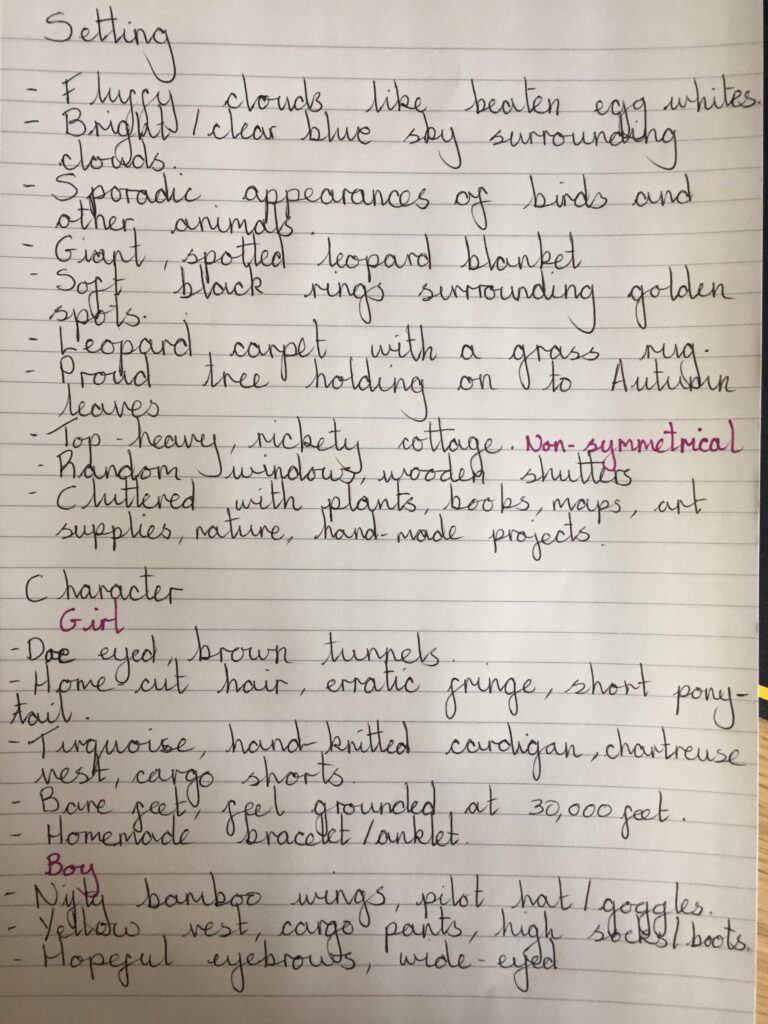 Setting
- Fluffy clouds like beaten egg whites.
- Bright/clear blue sky surrounding
clouds.
- Sporadic appearances of birds and
other animals.
- Giant, spotted leopard blanket
- Soft black rings surrounding golden
spots.
- Leopard carpet with a grass rug.
- Proud tree holding on to Autumn
leaves
- Top-heavy, rickety cottage. Non-symmetrical
- Random windows, wooden shutters
- Cluttered with plants, books, maps, art
supplies, nature, hand-made projects.
Character
Girl
- Doe eyed, brown tunnels.
- Home cut hair, erratic fringe, short pony-
tail.
- Turquoise, hand-knitted cardigan, chartreuse
vest, cargo shorts.
- Bare feet, feel grounded at 30,000 feet.
- Homemade bracelet/anklet.
Boy
- Nifty bamboo wings, pilot hat/goggles.
- Yellow vest, cargo pants, high socks/boots.
- Hopeful eyebrows, wide-eyed